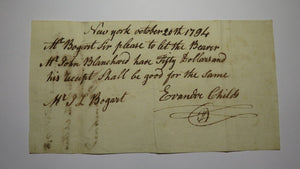 New york october 20th 1794
Mr Bogart Sir please to let the Bearer
Mr John Blanchard have Fifty Dollars and
his receipt Shall be good for the Same
Mr J L Bogart Evander Childs